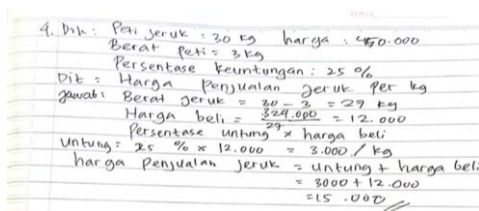 4. Dik : Peti jeruk : 30 kg harga : 450.000
Berat Peti = 3 kg
Persentase keuntungan : 25 %
Dit = Harga Penjualan Jeruk Per kg
Jawab : Berat Jeruk = 30 - 3 = 27 kg
Harga beli = 324.000 / 27 = 12.000
Persentase untung x harga beli
Untung = 25 % x 12.000 = 3.000 / kg
harga Penjualan Jeruk = untung + harga beli
= 3000 + 12.000
= 15.000